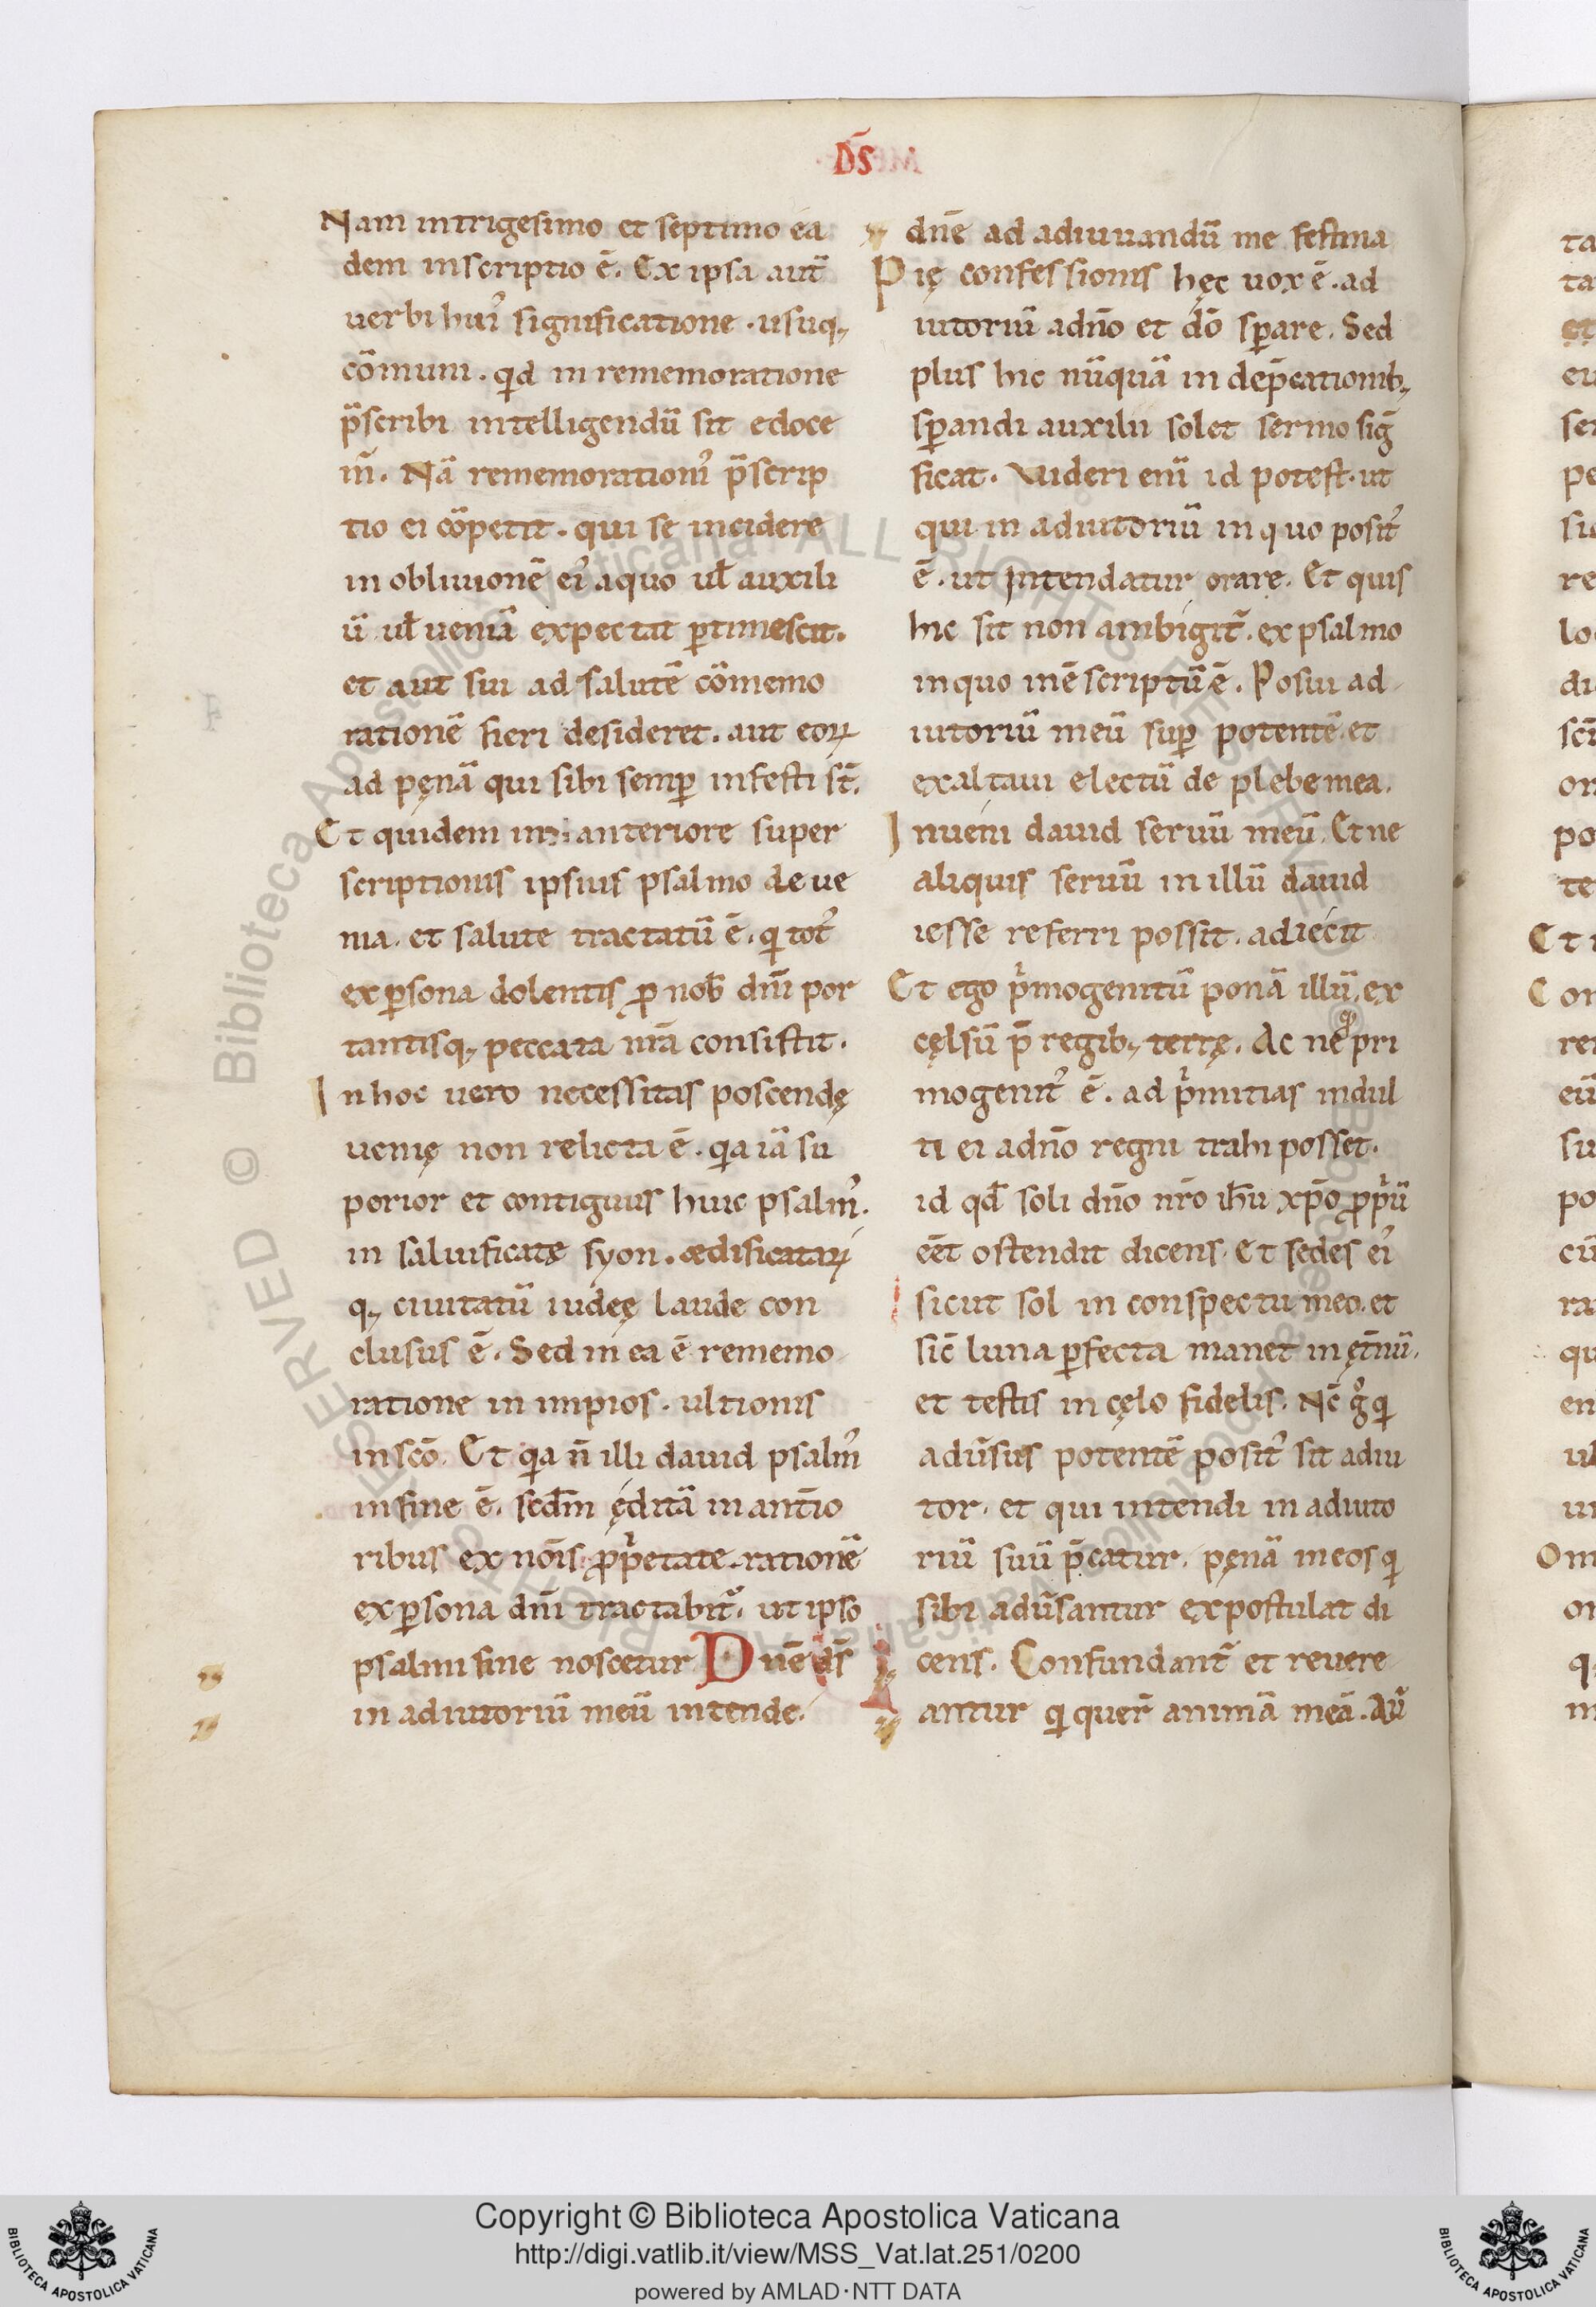 DS̄
Nam intrigesimo et septimo ea
dem inscriptio ē. Ex ipsa aut̄
uerbi hui᷒ significatione . usuq;
cōmuni . qd in rememoratione
p̄scribi intelligendū sit edoce
m̄. Nā rememorationi᷒ p̄scrip
tio ei cōpetit . qui se incidere
in obliuionē ei᷒ aquo uł auxili
ū uł ueniā expectat ꝑtimescit.
et aut sui ad salutē cōmemo
rationē fieri desideret . aut eoꝝ
ad pęnā qui sibi semꝑ infesti st̄.
Et quidem in anteriore super
scriptionis ipsius psalmo de ue
nia . et salute tractatū ē . qi tot᷒
exꝑsona dolentis ꝓ nob̄ dn̄i por
tantisq; peccata nr̄a consistit .
Inhoc uero necessitas poscendę
uenię non relicta ē . qia iā su
perior et contiguus huic psalm᷒.
in saluificatę syon . ædificataꝝ
q; ciuitatū iudeę laude con
clusus ē . Sed in ea ē rememo
ratione in impios . ultionis
inscō. Et qia n̄ illi dauid psalm᷒
infine ē . scd̄m ędita in antīo
ribus ex nōis ꝓp̄etate rationē
exꝑsona dn̄i tractabit᷑. ut ipso
psalmi fine noscetur Dn̄e ds̄
in adiutoriū meū intende.
dn̄e ad adiuuandū me festina
Pię confessionis hęc uox ē . ad
iutoriū adn̄o et dō sꝑare . Sed
plus hic nūquā in dep̄cationib;
sꝑandi auxilii solet sermo siḡ
ficat . Uideri eni̅ id potest . ut
qui in adiutoriū in quo posit᷒
ē . ut intendatur orare . Et quis
hic sit non ambigit᷑ . ex psalmo
inquo mē scriptū ē . Posui ad
iutoriū meū suꝑ potentē . et
exaltaui electū de plebe mea .
Inueni dauid seruū meū . Et ne
aliquis seruū in illū dauid
iesse referri possit . adiecit
Et ego p̄mogenitū ponā illū . ex
cęlsū p̄ regib; terrę . Ac ne qi pri
mogenit᷒ ē . ad p̄mitias indul
ti ei adn̄o regni trahi posset .
id qd̄ soli dn̄o nr̄o ih̄u xp̄o ꝓp̄ū
eēt ostendit dicens . Et sedes ei᷒
sicut sol in conspectu meo . et
sic̄ luna ꝑfecta manet in ęt̄nū.
et testis in cęlo fidelis . Nc̄ g͛ qi
adūsus potentē posit᷒ sit adiu
tor . et qui intendi in adiuto
riū suū p̄catur . pęnā in eos qi
sibi adūsantur expostulat di
cens . Confundant᷑ et reuere
antur qi quer̄ animā meā . Au᷑